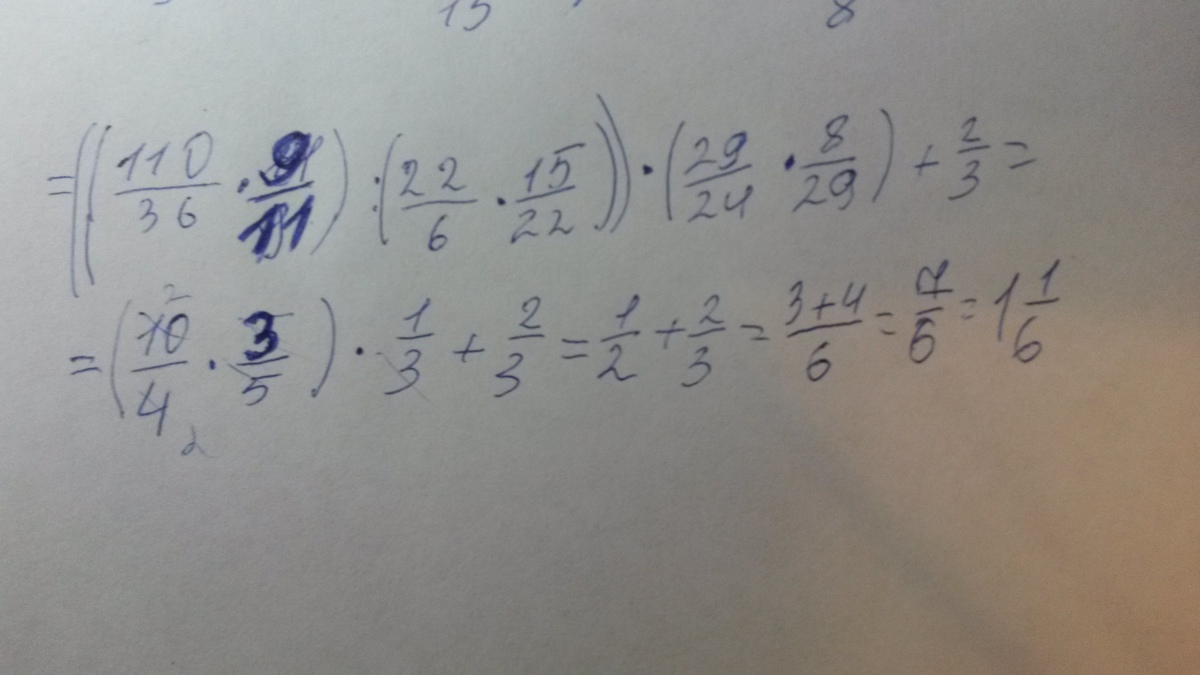 15 8
= ((110/36 · 9/11) : (22/6 · 15/22)) · (29/24 · 8/29) + 2/3 =
= (10/4 · 3/5) · 1/3 + 2/3 = 1/2 + 2/3 = 3+4/6 = 7/6 = 1 1/6